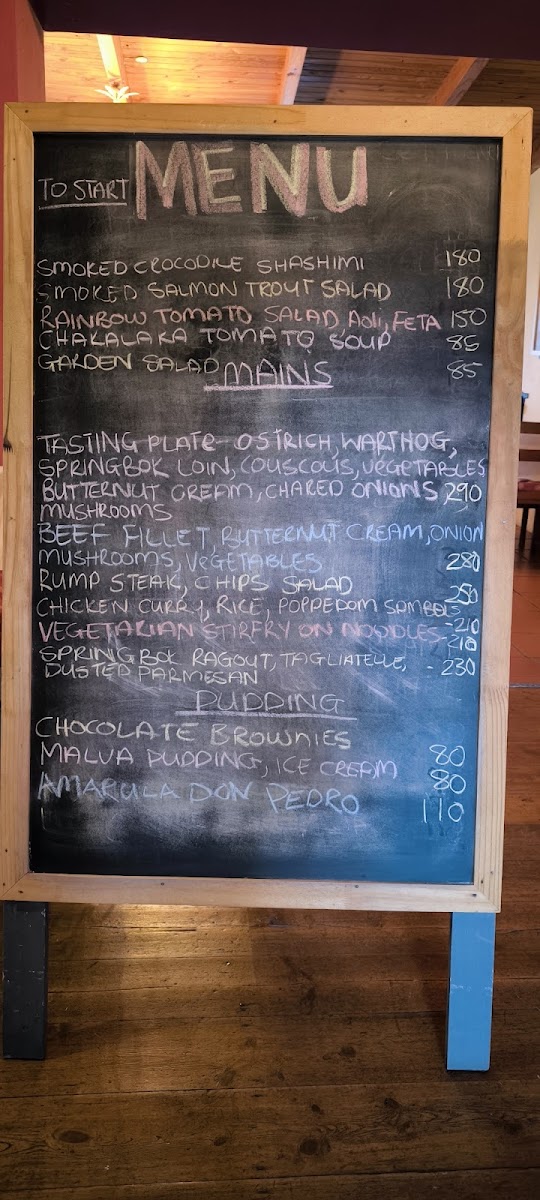 TO START MENU
SMOKED CROCODILE SHASHIMI 180
SMOKED SALMON TROUT SALAD 180
RAINBOW TOMATO SALAD AOLI, FETA 150
CHAKALAKA TOMATO SOUP 85
GARDEN SALAD 85
MAINS
TASTING PLATE- OSTRICH, WARTHOG,
SPRINGBOK LOIN, COUSCOUS, VEGETABLES
BUTTERNUT CREAM, CHARED ONIONS, 290
MUSHROOMS
BEEF FILLET, BUTTERNUT CREAM, ONION
MUSHROOMS, VEGETABLES 280
RUMP STEAK, CHIPS SALAD 250
CHICKEN CURRY, RICE, POPPEDOM SAMBALS -210
VEGETARIAN STIRFRY ON NOODLES -210
SPRINGBOK RAGOUT, TAGLIATELLE, - 230
DUSTED PARMESAN
PUDDING
CHOCOLATE BROWNIES 80
MALVA PUDDING, ICE CREAM 80
AMARULA DON PEDRO 110